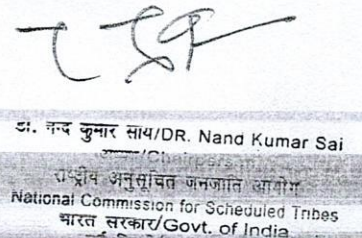 डा. नन्द कुमार साय/DR. Nand Kumar Sai
/Chairperson
राष्ट्रीय अनुसूचित जनजाति आयोग
National Commission for Scheduled Tribes
भारत सरकार/Govt. of India